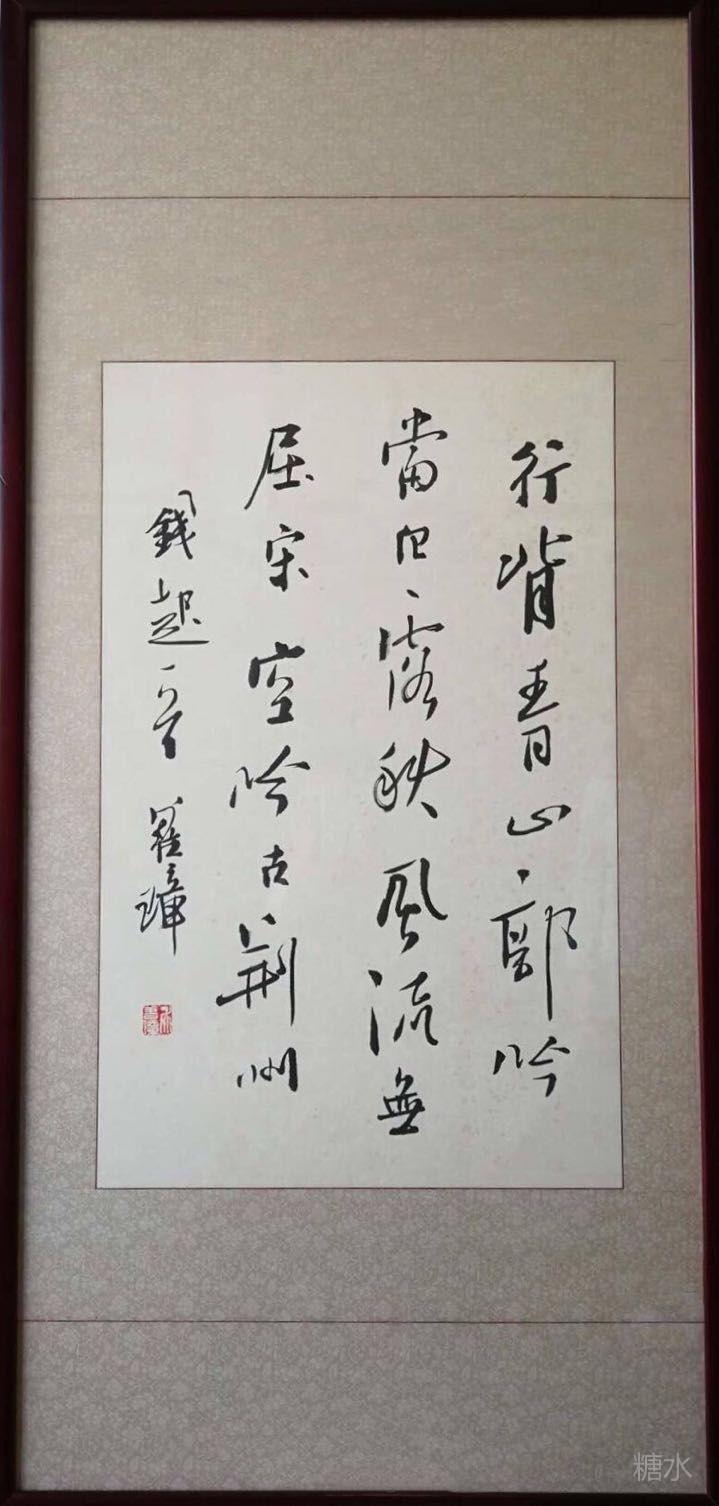 行背青山郭吟
當白露秋風流無
屈宋空吟古荆州
錢起一首
糖水